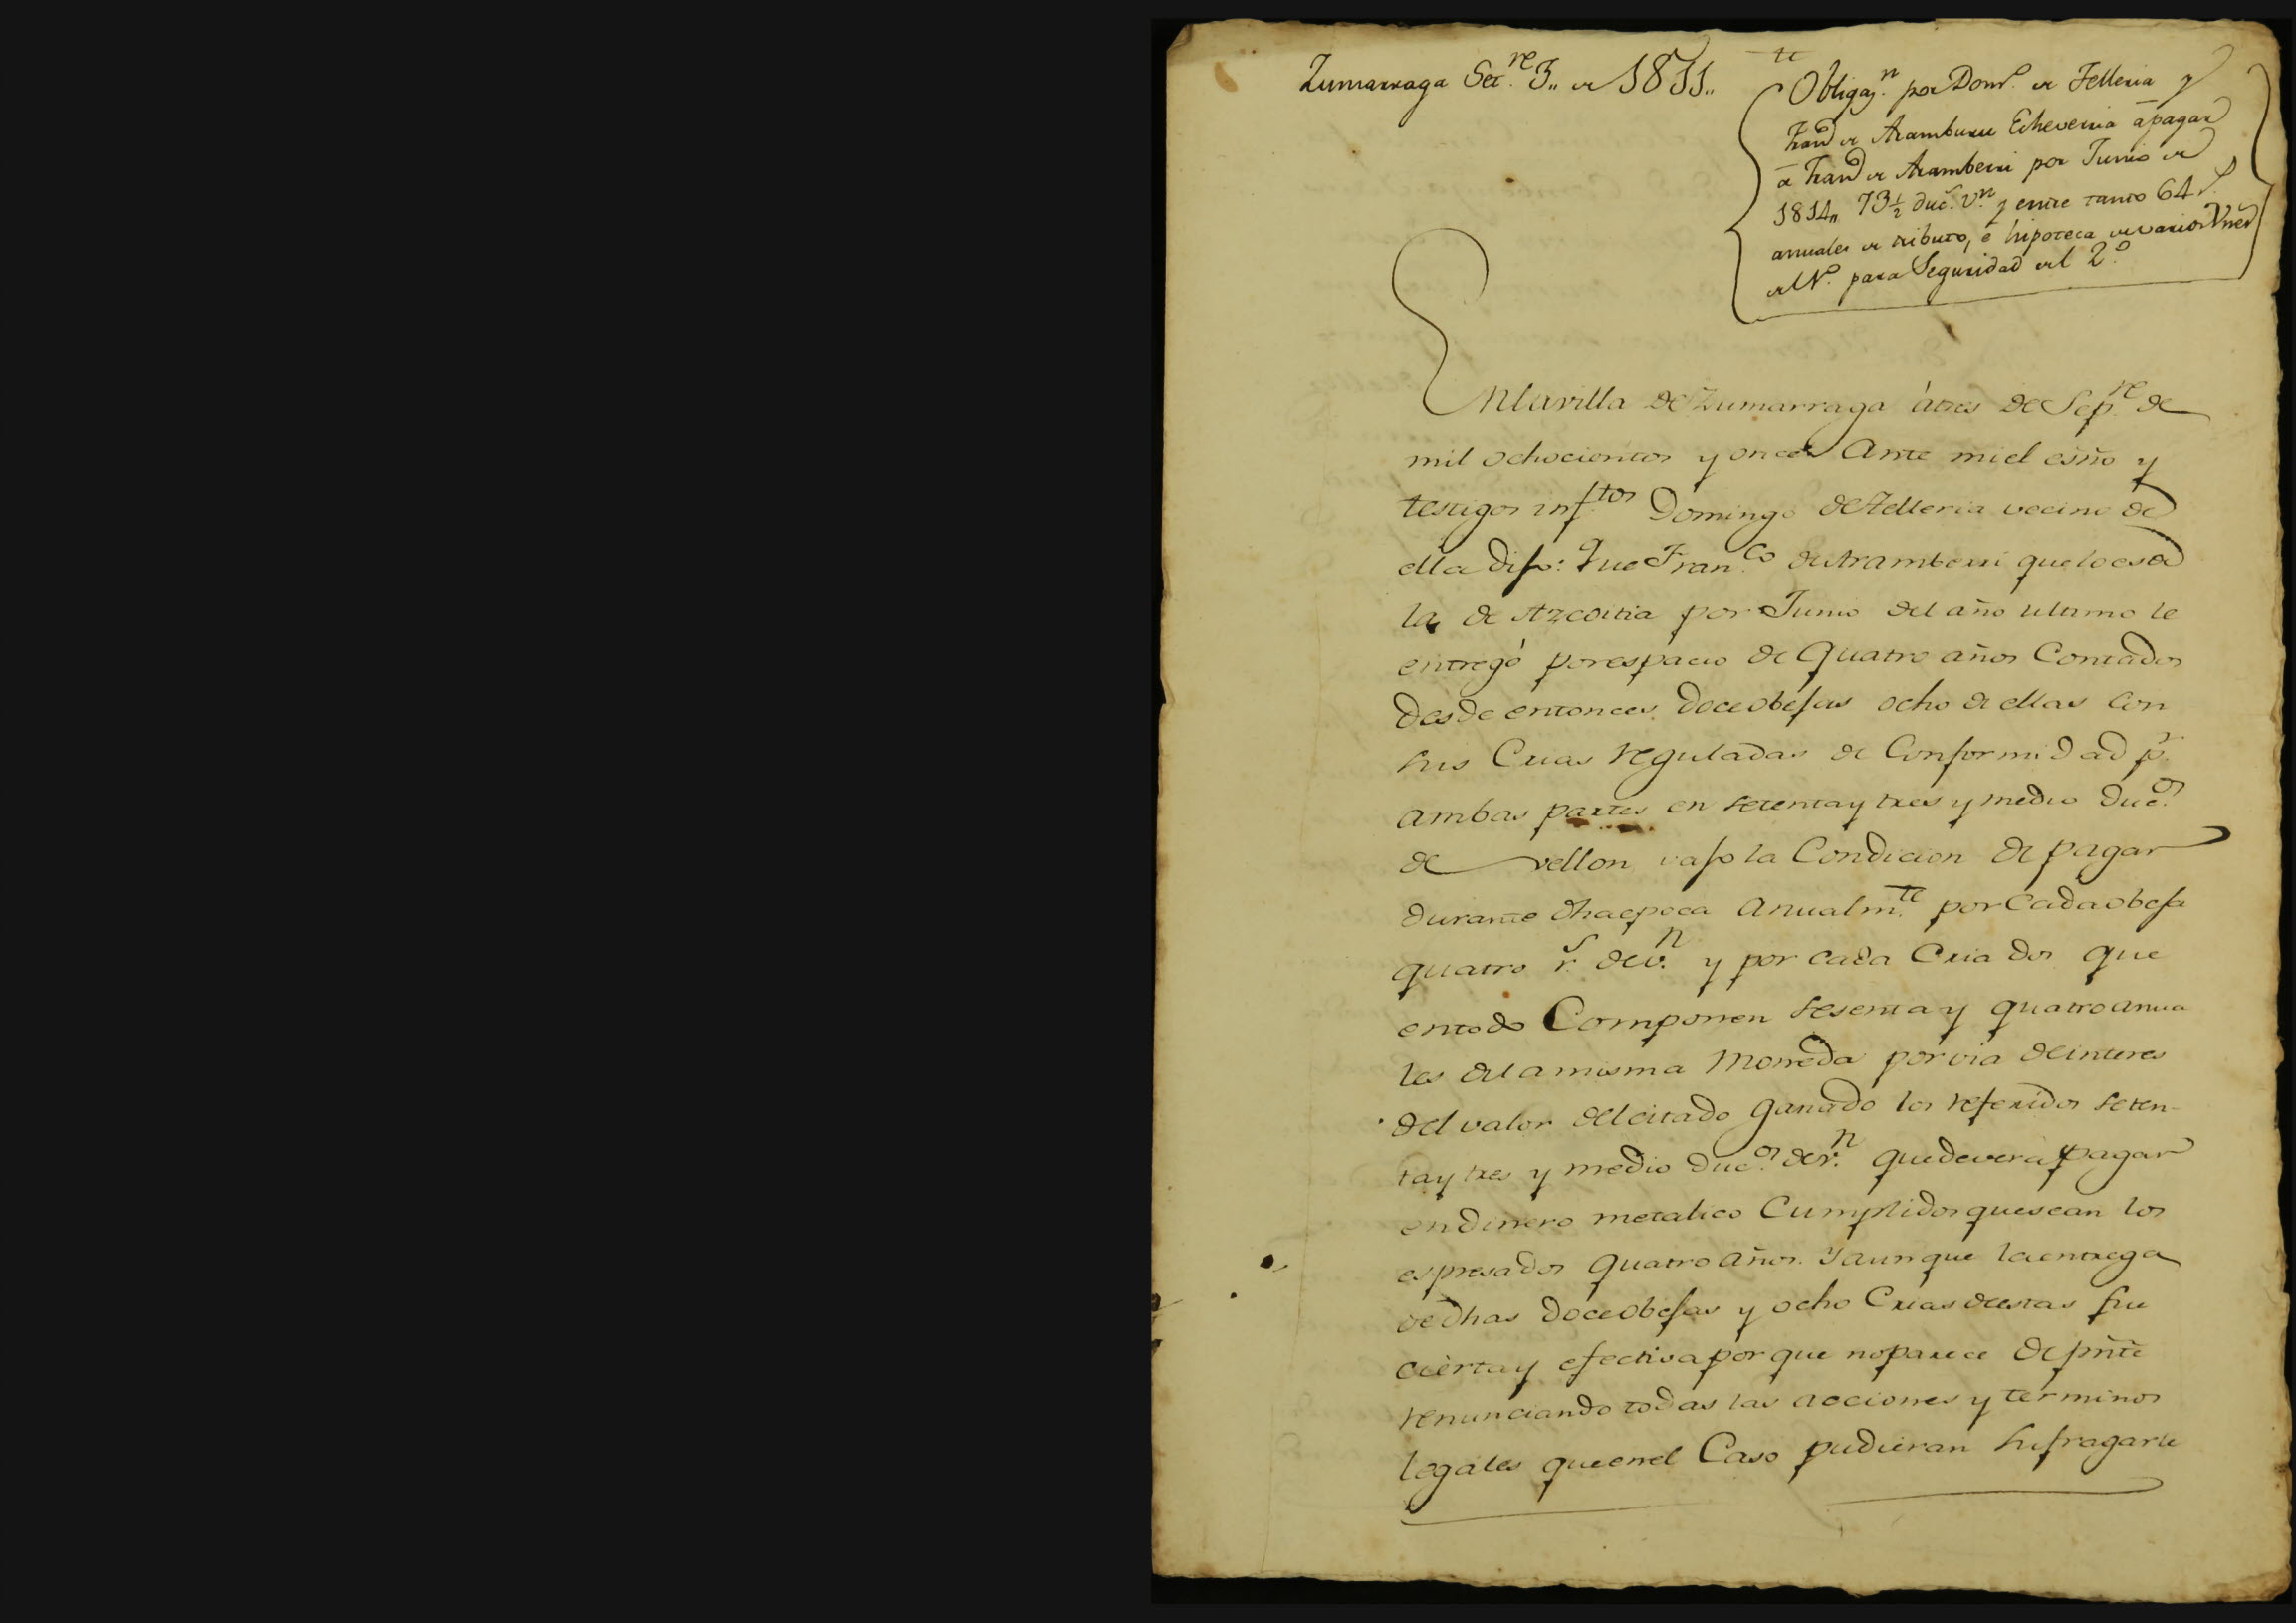 Zumarraga Set.re 3,, de 1811,,
te
Obligaz.n por Dom.o de Telleria y
Fran.co de Aramburu Echeverria á pagar
á Fran.co de Aramberri por Junio de
1814,, 73½ duc.s v.n y entre tanto 64 r.s
anuales de tributo, é hipoteca de varios Vnes
del 1.º para Seguridad del 2.º
En la villa de Zumarraga á tres de Sep.re de
mil ochocientos y once Ante mi el esño y
testigos inf.tos Domingo de Telleria vecino de
ella dijo: Que Fran.co de Aramberri que lo es de
la de Azcoitia por Junio del año ultimo le
entregó por espacio de Quatro años Contados
desde entonces doce obejas ocho de ellas con
sus Crias reguladas de Conformidad p.r
ambas partes en setenta y tres y medio duc.os
de vellon vajo la Condicion de pagar
durante dha epoca anualm.te por cada obeja
quatro r.s de v.n y por cada Cria dos que
en todo Componen sesenta y quatro anua
les de la misma Moneda por via de interes
del valor del citado ganado los referidos seten-
ta y tres y medio duc.os de v.n que devera pagar
en dinero metalico Cumplidos que sean los
espresados Quatro años. Y aunque la entrega
de dhas doce obejas y ocho Crias de estas fue
cierta y efectiva por que no parece de pñte
renunciando todas las acciones y terminos
legales que en el Caso pudieran sufragarle